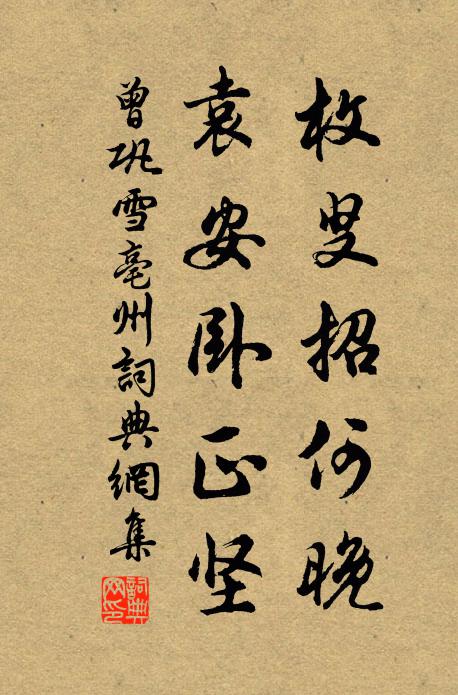 枚叟招何晚
袁安卧正坚
曾巩雪亳州詞典網集
詞典网印